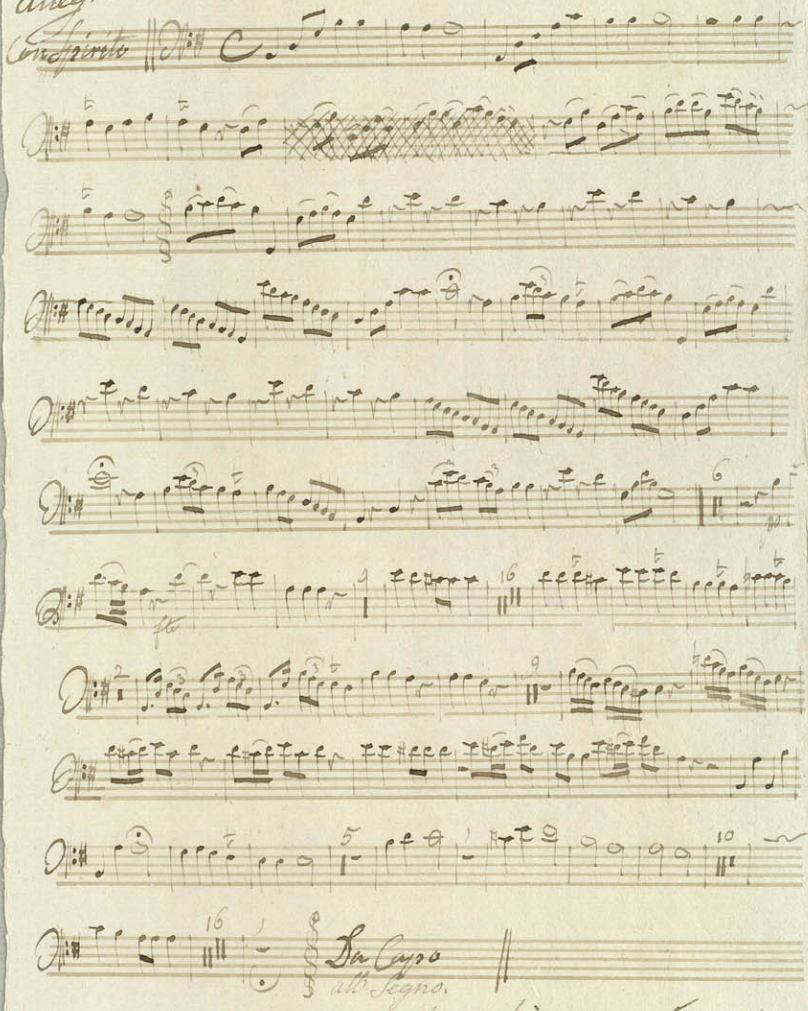 Alleg.
Con Spirito
6
po
9
16
fte
2
3
3
3
9
5
10
16
Da Capo
all Segno.